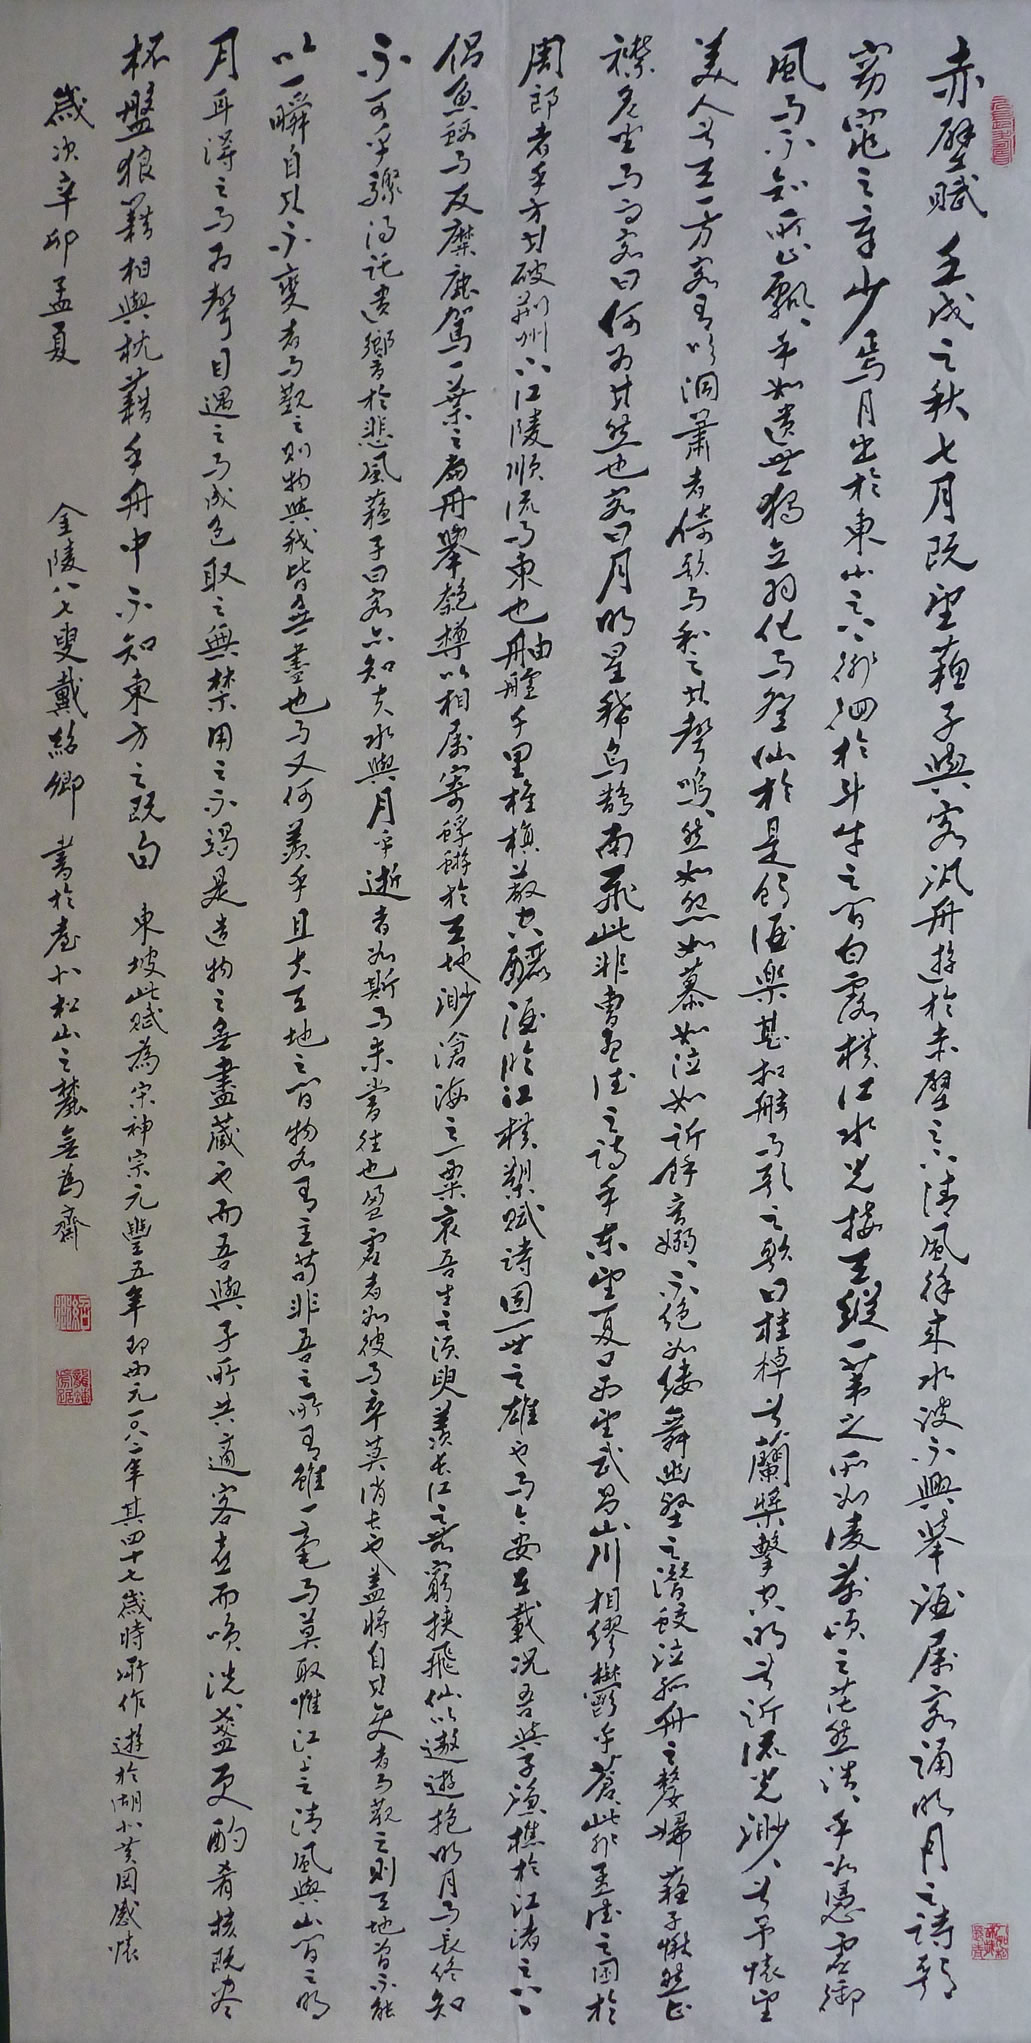 赤壁賦 壬戌之秋七月既望蘇子與客泛舟遊於赤壁之下清風徐來水波不興舉酒屬客誦明月之詩歌
窈窕之章少焉月出於東山之上徘徊於斗牛之間白露橫江水光接天縱一葦之所如凌萬頃之茫然浩浩乎如憑虛御
風而不知所止飄飄乎如遺世獨立羽化而登仙於是飲酒樂甚扣舷而歌之歌曰桂棹兮蘭槳擊空明兮泝流光渺渺兮予懷望
美人兮天一方客有吹洞簫者倚歌而和之其聲嗚嗚然如怨如慕如泣如訴餘音嫋嫋不絕如縷舞幽壑之潛蛟泣孤舟之嫠婦蘇子愀然正
襟危坐而問客曰何為其然也客曰月明星稀烏鵲南飛此非曹孟德之詩乎東望夏口西望武昌山川相繆鬱乎蒼蒼此非孟德之困於
周郎者乎方其破荊州下江陵順流而東也舳艫千里旌旗蔽空釃酒臨江橫槊賦詩固一世之雄也而今安在哉況吾與子漁樵於江渚之上
侶魚蝦而友麋鹿駕一葉之扁舟舉匏樽以相屬寄蜉蝣於天地渺滄海之一粟哀吾生之須臾羨長江之無窮挾飛仙以遨遊抱明月而長終知
不可乎驟得託遺響於悲風蘇子曰客亦知夫水與月乎逝者如斯而未嘗往也盈虛者如彼而卒莫消長也蓋將自其變者而觀之則天地曾不能
以一瞬自其不變者而觀之則物與我皆無盡也而又何羨乎且夫天地之間物各有主苟非吾之所有雖一毫而莫取惟江上之清風與山間之明
月耳得之而為聲目遇之而成色取之無禁用之不竭是造物之無盡藏也而吾與子所共適客喜而笑洗盞更酌肴核既盡
杯盤狼藉相與枕藉乎舟中不知東方之既白 東坡此賦為宋神宗元豐五年即西元一〇八二年其四十七歲時所作遊於湖北黃岡感懷
歲次辛卯孟夏 金陵八七叟戴紹卿 書於臺北松山之麓無為齋